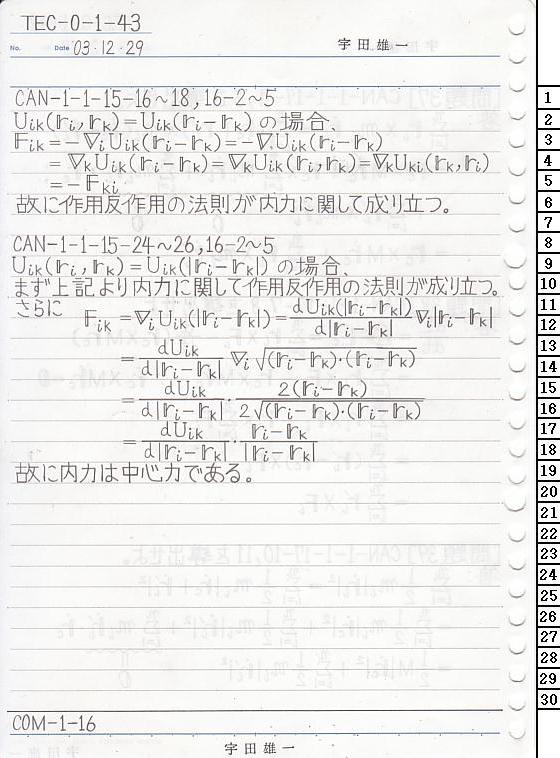 TEC-0-1-43
No.
Date '03・12・29
宇田雄一
CAN-1-1-15-16~18, 16-2~5
Uik(𝕣i, 𝕣k)=Uik(𝕣i-𝕣k) の場合、
𝔽ik=-∇iUik(𝕣i-𝕣k)=-∇iUik(𝕣i-𝕣k)
=∇kUik(𝕣i-𝕣k)=∇kUik(𝕣i, 𝕣k)=∇kUki(𝕣k, 𝕣i)
=-𝔽ki
故に作用反作用の法則が内力に関して成り立つ。
CAN-1-1-15-24~26, 16-2~5
Uik(𝕣i, 𝕣k)=Uik(|𝕣i-𝕣k|) の場合、
まず上記より内力に関して作用反作用の法則が成り立つ。
さらに 𝔽ik=∇iUik(|𝕣i-𝕣k|)=dUik(|𝕣i-𝕣k|)/d|𝕣i-𝕣k| ∇i|𝕣i-𝕣k|
=dUik/d|𝕣i-𝕣k| ∇i√(𝕣i-𝕣k)・(𝕣i-𝕣k)
=dUik/d|𝕣i-𝕣k|・2(𝕣i-𝕣k)/2√(𝕣i-𝕣k)・(𝕣i-𝕣k)
=dUik/d|𝕣i-𝕣k|・𝕣i-𝕣k/|𝕣i-𝕣k|
故に内力は中心力である。
COM-1-16
宇田雄一
1
2
3
4
5
6
7
8
9
10
11
12
13
14
15
16
17
18
19
20
21
22
23
24
25
26
27
28
29
30